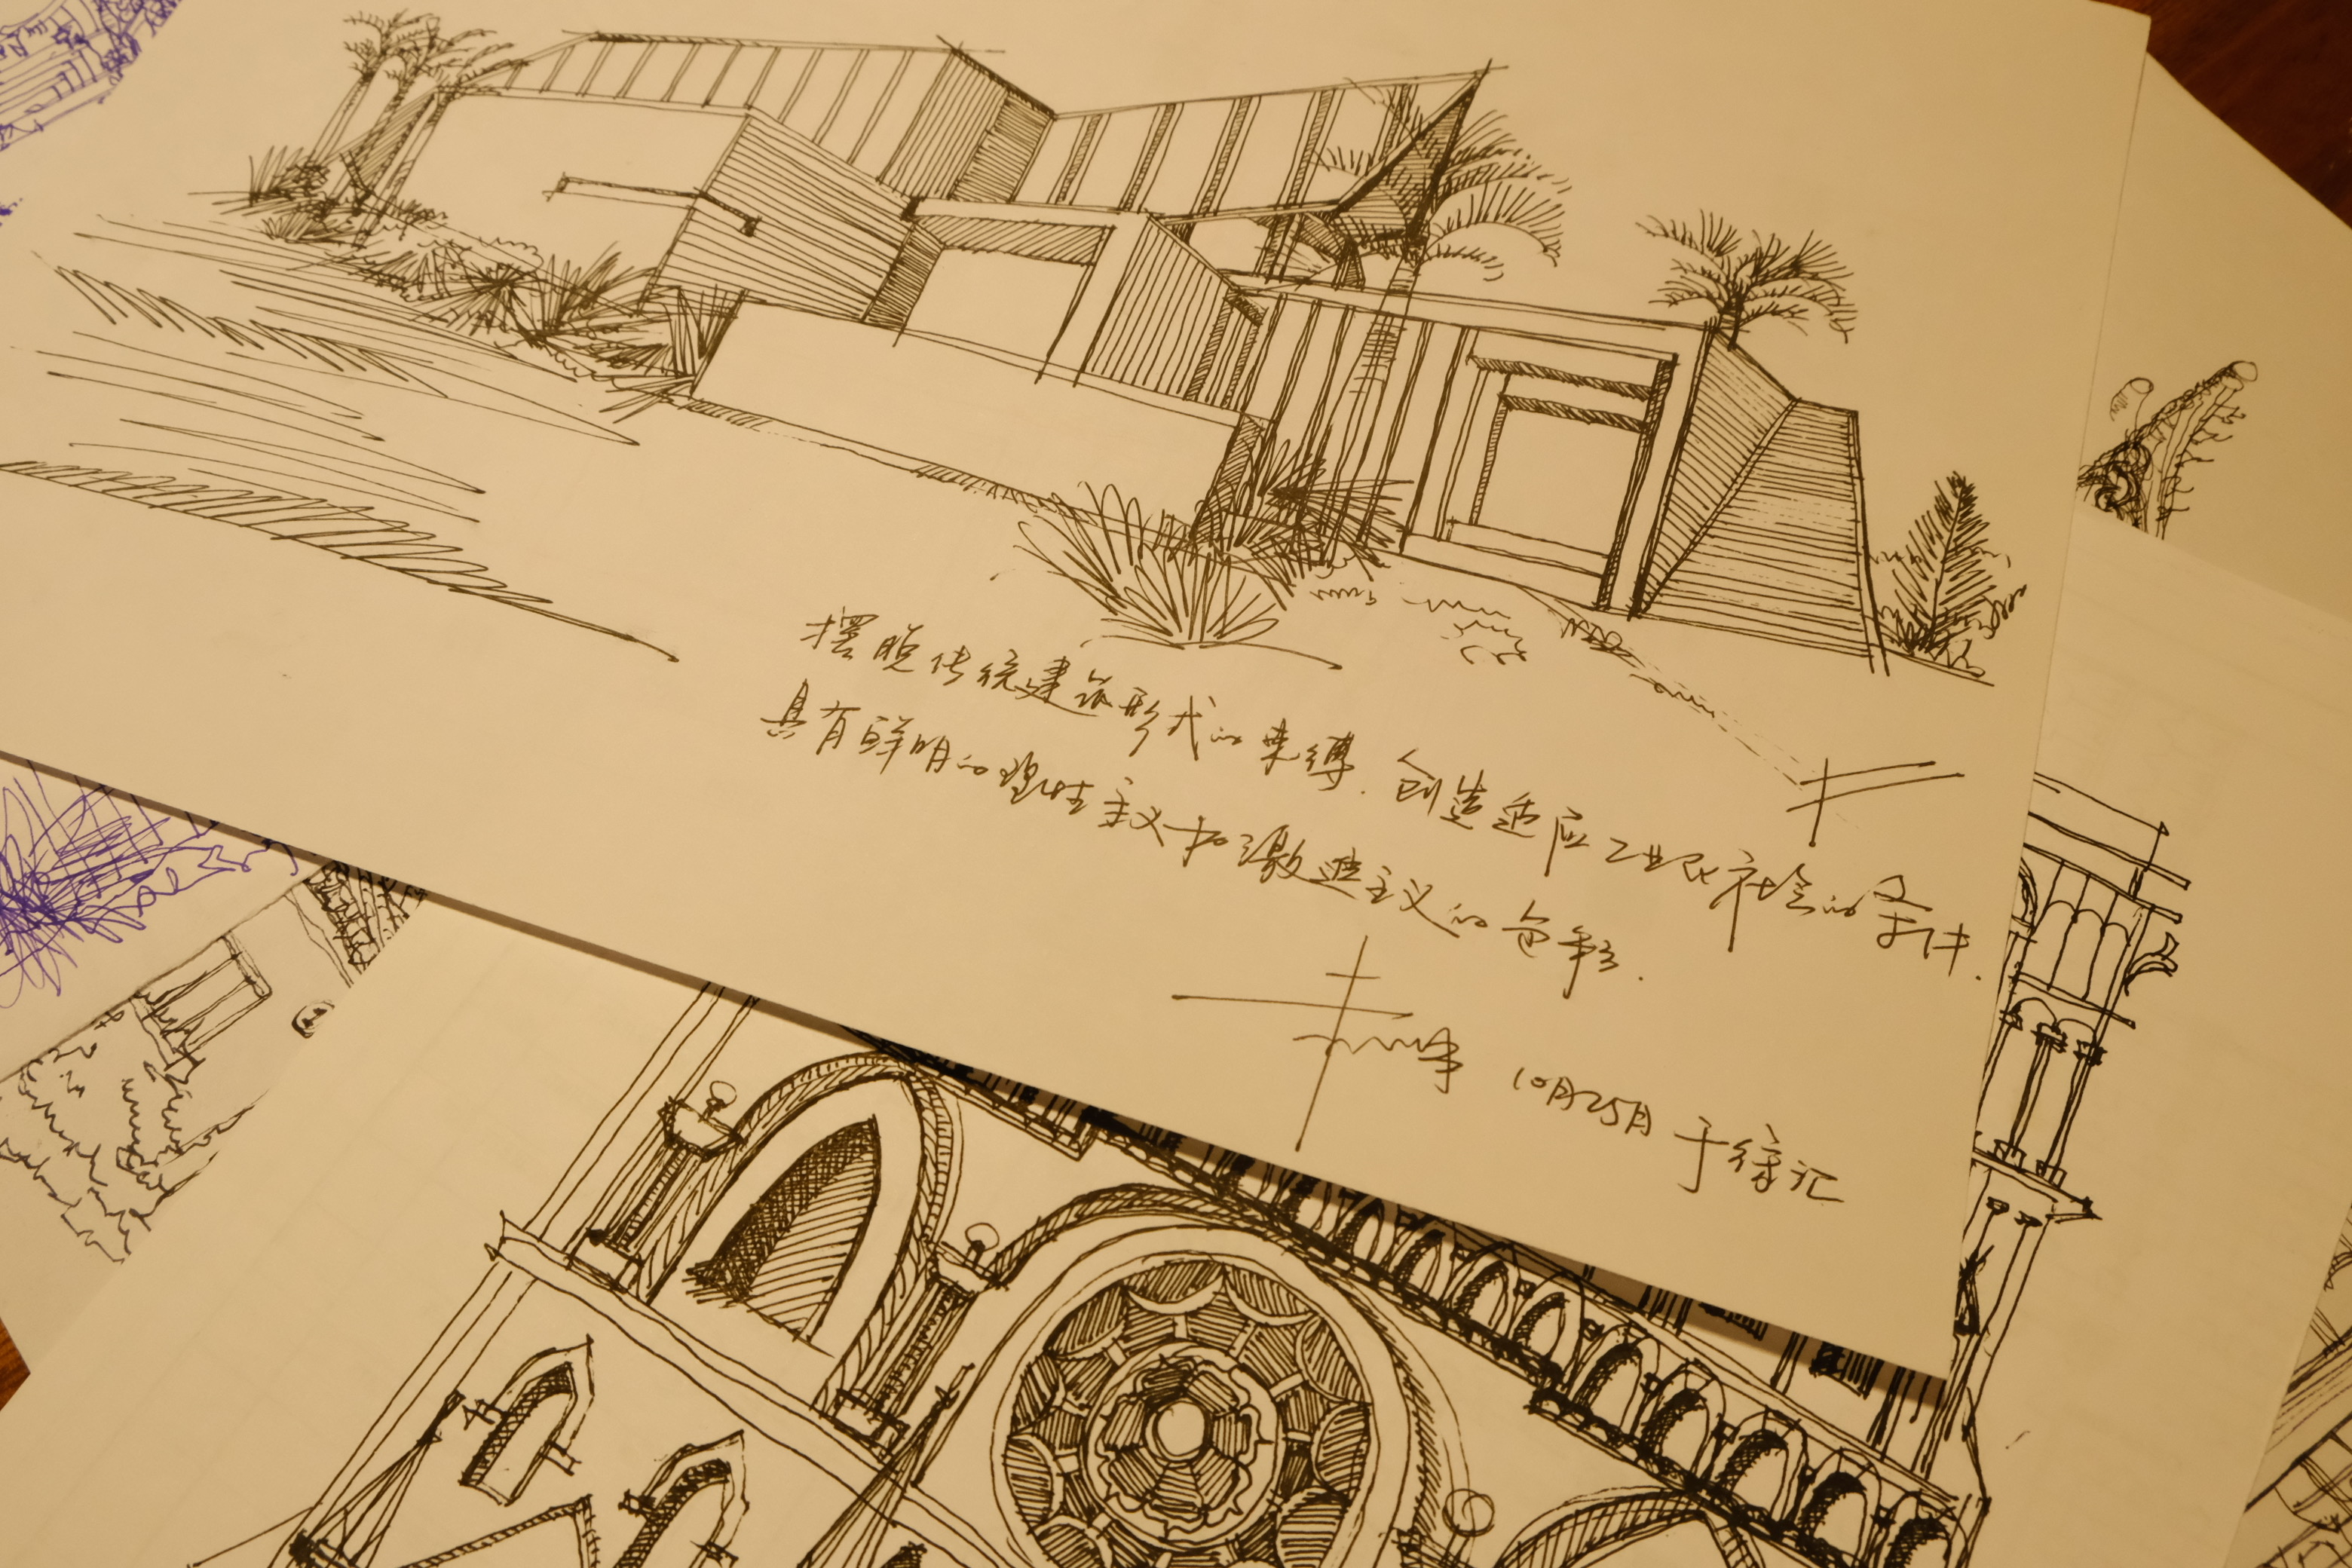 摆脱传统建筑形式的束缚.创造适应工业化社会的条件.
具有鲜明的理性主义和激进主义的色彩.
10月25日 于徐汇